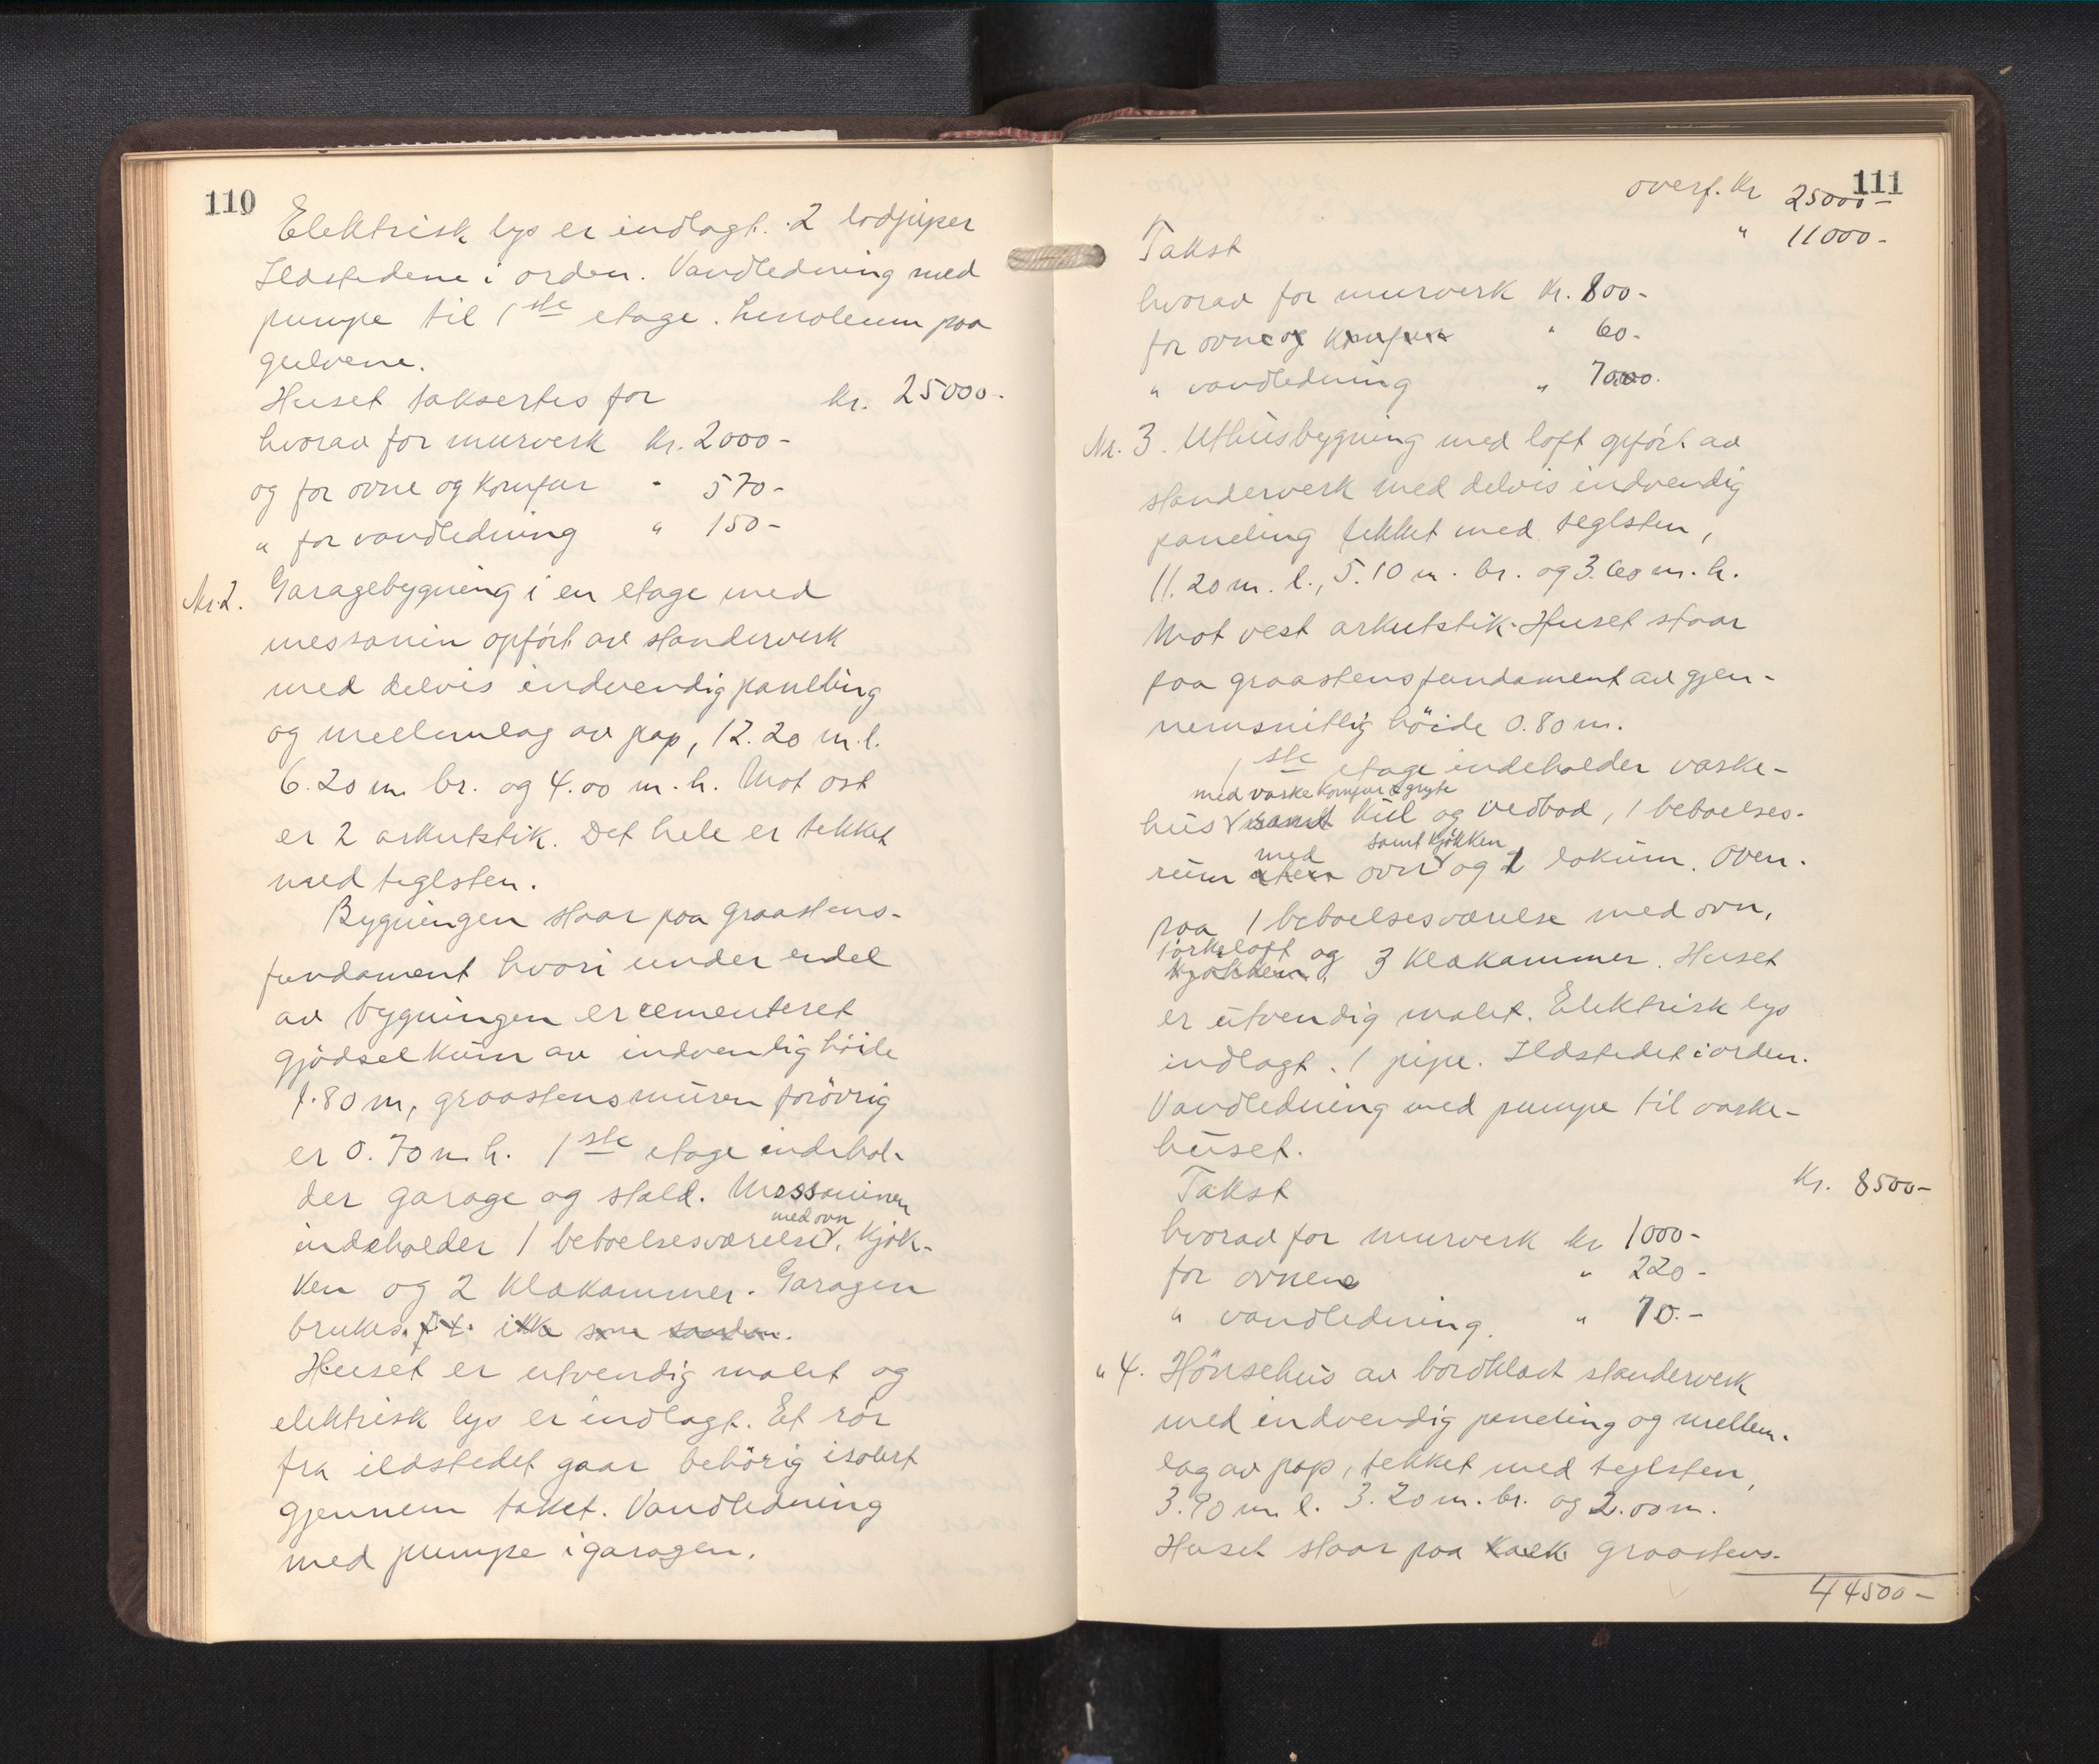 110
Elektrisk lys er indlagt. 2 lodpiper
Ildstedene i orden. Vandledning med
pumpe til 1ste etage. Linoleum paa
gulvene.
Huset taksertes for kr. 25000.-
hvorav for murverk kr. 2000-
og for ovne og komfur " 570-
" for vandledning " 150-
Nr. 2. Garagebygning i en etage med
messanin opført av standerverk
med delvis indvendig panelling
og mellemlag av pap, 12.20 m. l.
6.20 m. br. og 4.00 m. h. Mot øst
er 2 arkutstik. Det hele er tekket
med teglsten.
Bygningen staar paa graastens-
fundament hvori under endel
av bygningen er cementeret
gjødselkum av indvendig høide
1.80 m, graastensmuren forøvrig
er 0.70 m. h. 1ste etage indehol-
der garage og stald. Messaninen
med ovn
indeholder 1 beboelsesværelse, kjøk-
ken og 2 klækammer. Garagen
brukes f.t. ikke som saadan.
Huset er utvendig malet og
elektrisk lys er indlagt. Et rør
fra ildstedet gaar behørig isolert
gjennem taket. Vandledning
med pumpe i garagen.
111
overf. kr 25000-
Takst " 11000-
hvorav for murverk kr. 800-
for ovne og komfur " 60-
" vandledning "
Nr. 3. Uthusbygning med loft opført av
standerverk med delvis indvendig
paneling tekket med teglsten,
11.20 m. l., 5.10 m. br. og 3.60 m. h.
Mot vest arkutstik. Huset staar
paa graastensfundament av gjen-
nemsnitlig høide 0.80 m.
1ste etage indeholder vaske-
med vaskekomfur & gryte
hus samt kul og vedbod, 1 beboelses-
med samt kjøkken
rum uten ovn og 1 lokum. Oven-
paa 1 beboelsesværelse med ovn,
tørkeloft
kjøkken og 3 klækammer. Huset
er utvendig malet. Elektrisk lys
indlagt. 1 pipe. Ildstedet i orden.
Vandledning med pumpe til vaske-
huset.
Takst kr. 8500-
hvorav for murverk kr 1000-
for ovnene " 220-
" vandledning. " 70.-
" 4. Hønsehus av bordklædt standerverk
med indvendig paneling og mellem-
lag av pap, tekket med teglsten,
3.90 m l. 3.20 m. br. og 2.00 m.
Huset staar paa graastens-
44500-